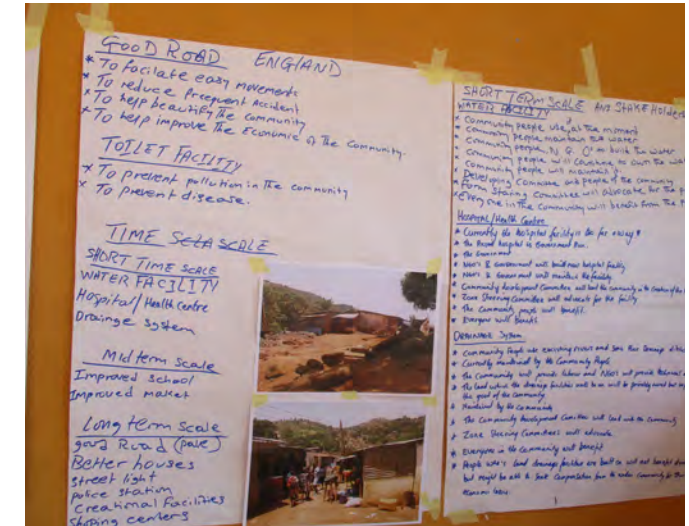 GOOD ROAD ENGLAND
* To facilate easy movements
* To reduce Accident
* To help beautify The community
* To help improve The Economic of the community.
TOILET FACILITY
* To prevent pollution in the community
* To prevent disease.
TIME SCLA SCALE
SHORT TIME SCALE
WATER FACILITY
Hospital/Health Centre
Drainge System
Mid term Scale
Improved School
Improved market
Long term Scale
good Road (pale)
Better houses
street light
police station
Creational Facilities
Shoping centers
SHORT TERM SCALE AND STAKE Holders
WATER FACILITY
* Community people use at the moment
* Community people maintain the water
* Community people, N.G.O's built the water
* Community people will continue to own the
* Community people will maintain
* Developing Committee and people of the community
* Form Steering Committee will advocate for the
* Everyone in the Community will benefit from the
Hospital/Health Centre
* Currently the hospital facility is too far away
* the hospital is Government Run.
* the Government
* NGO's & Government will build new hospital facility
* NGO's & Government will maintain the facility
* Community development Committee will lead the community in the
* Zone Steering Committee will advocate for the facility
* The Community people will benefit.
* Everyone will benefit
DRAINAGE System
* Community People use existing rivers and
* Currently maintained by the Community People
* the Community will provide labour and NGO's will provide
* the land where the drainage facilities will be on will be
the good of the community
* Maintained by the Community
* The Community development Committee will lead with the Community
* Zone Steering Committees will advocate
* Everyone in the Community will benefit
* People who's land drainage facilities are built on will not benefit
but might be able to seek Compensation from the